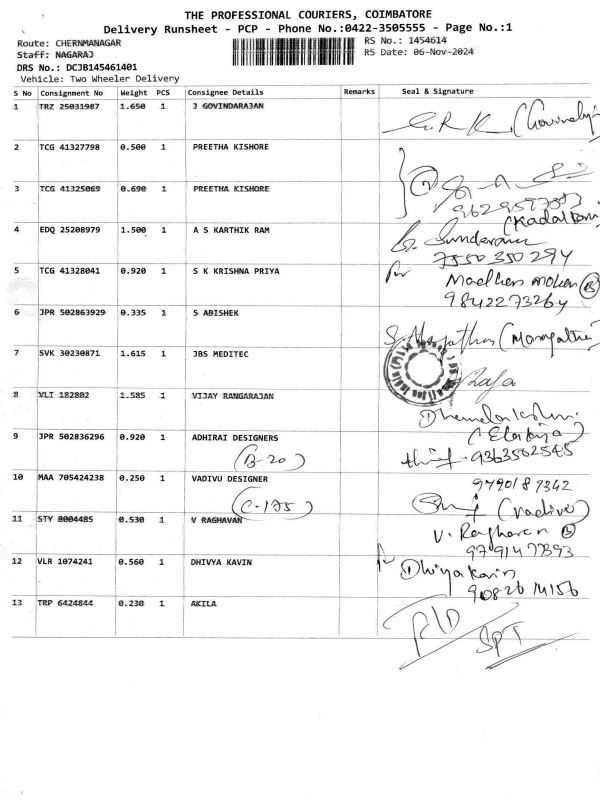 THE PROFESSIONAL COURIERS, COIMBATORE
Delivery Runsheet - PCP - Phone No.:0422-3505555 - Page No.:1
Route: CHERNMANAGAR
RS No.: 1454614
Staff: NAGARAJ
RS Date: 06-Nov-2024
DRS No.: DCJB145461401
Vehicle: Two Wheeler Delivery
S No Consignment No Weight PCS Consignee Details Remarks Seal & Signature
1 TRZ 25031987 1.650 1 J GOVINDARAJAN
G.R K
2 TCG 41327798 0.500 1 PREETHA KISHORE
2
3 TCG 41325069 0.690 1 PREETHA KISHORE
4 EDQ 25208979 1.500 1 A S KARTHIK RAM
7550 350 294
5 TCG 41328041 0.920 1 S K KRISHNA PRIYA
9842273264
6 JPR 502863929 0.335 1 S ABISHEK
7 SVK 30230871 1.615 1 JBS MEDITEC
Raja
8 VLI 182802 1.585 1 VIJAY RANGARAJAN
9 JPR 502836296 0.920 1 ADHIRAI DESIGNERS
(B-20)
9363562545
10 MAA 705424238 0.250 1 VADIVU DESIGNER
9790189342
(C-175)
(Vadivu)
11 STY 8004485 0.530 1 V RAGHAVAN
V. Raghavan B
9791477393
12 VLR 1074241 0.560 1 DHIVYA KAVIN
Dhivya Kavin
13 TRP 6424844 0.230 1 AKILA
SPT